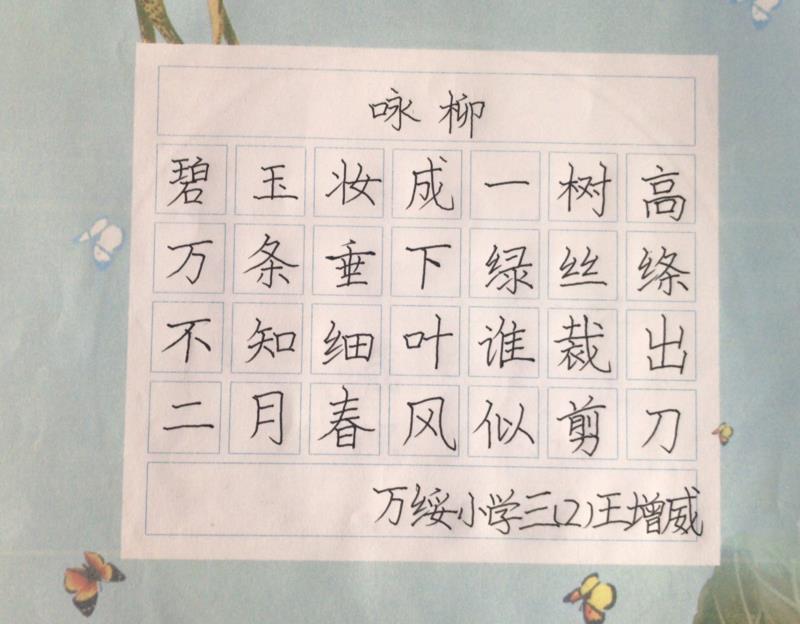 咏柳
碧玉妆成一树高
万条垂下绿丝绦
不知细叶谁裁出
二月春风似剪刀
万绥小学三(2)王增威